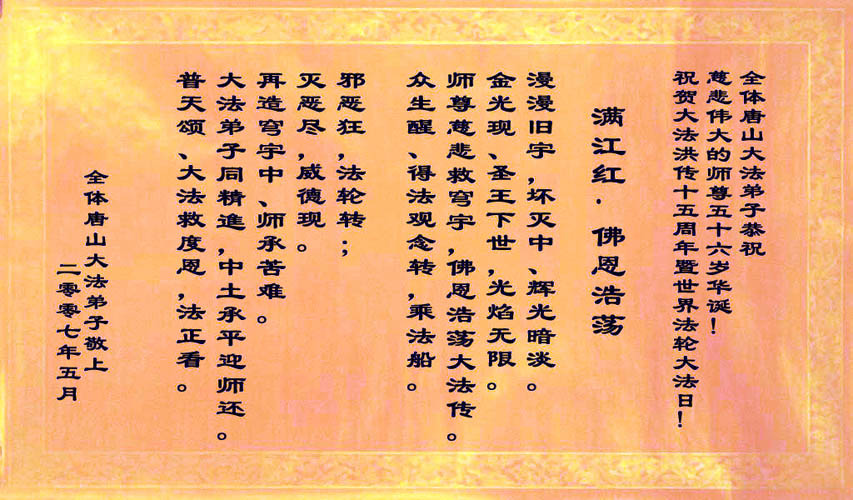 全体唐山大法弟子恭祝
慈悲伟大的师尊五十六岁华诞！
祝贺大法洪传十五周年暨世界法轮大法日！
满江红·佛恩浩荡
漫漫旧宇，坏灭中、辉光暗淡。
金光现、圣王下世，光焰无限。
师尊慈悲救穹宇，佛恩浩荡大法传。
众生醒、得法观念转，乘法船。
邪恶狂，法轮转；
灭恶尽，威德现。
再造穹宇中、师承苦难。
大法弟子同精進，中土承平迎师还。
普天颂、大法救度恩，法正看。
全体唐山大法弟子敬上
二零零七年五月